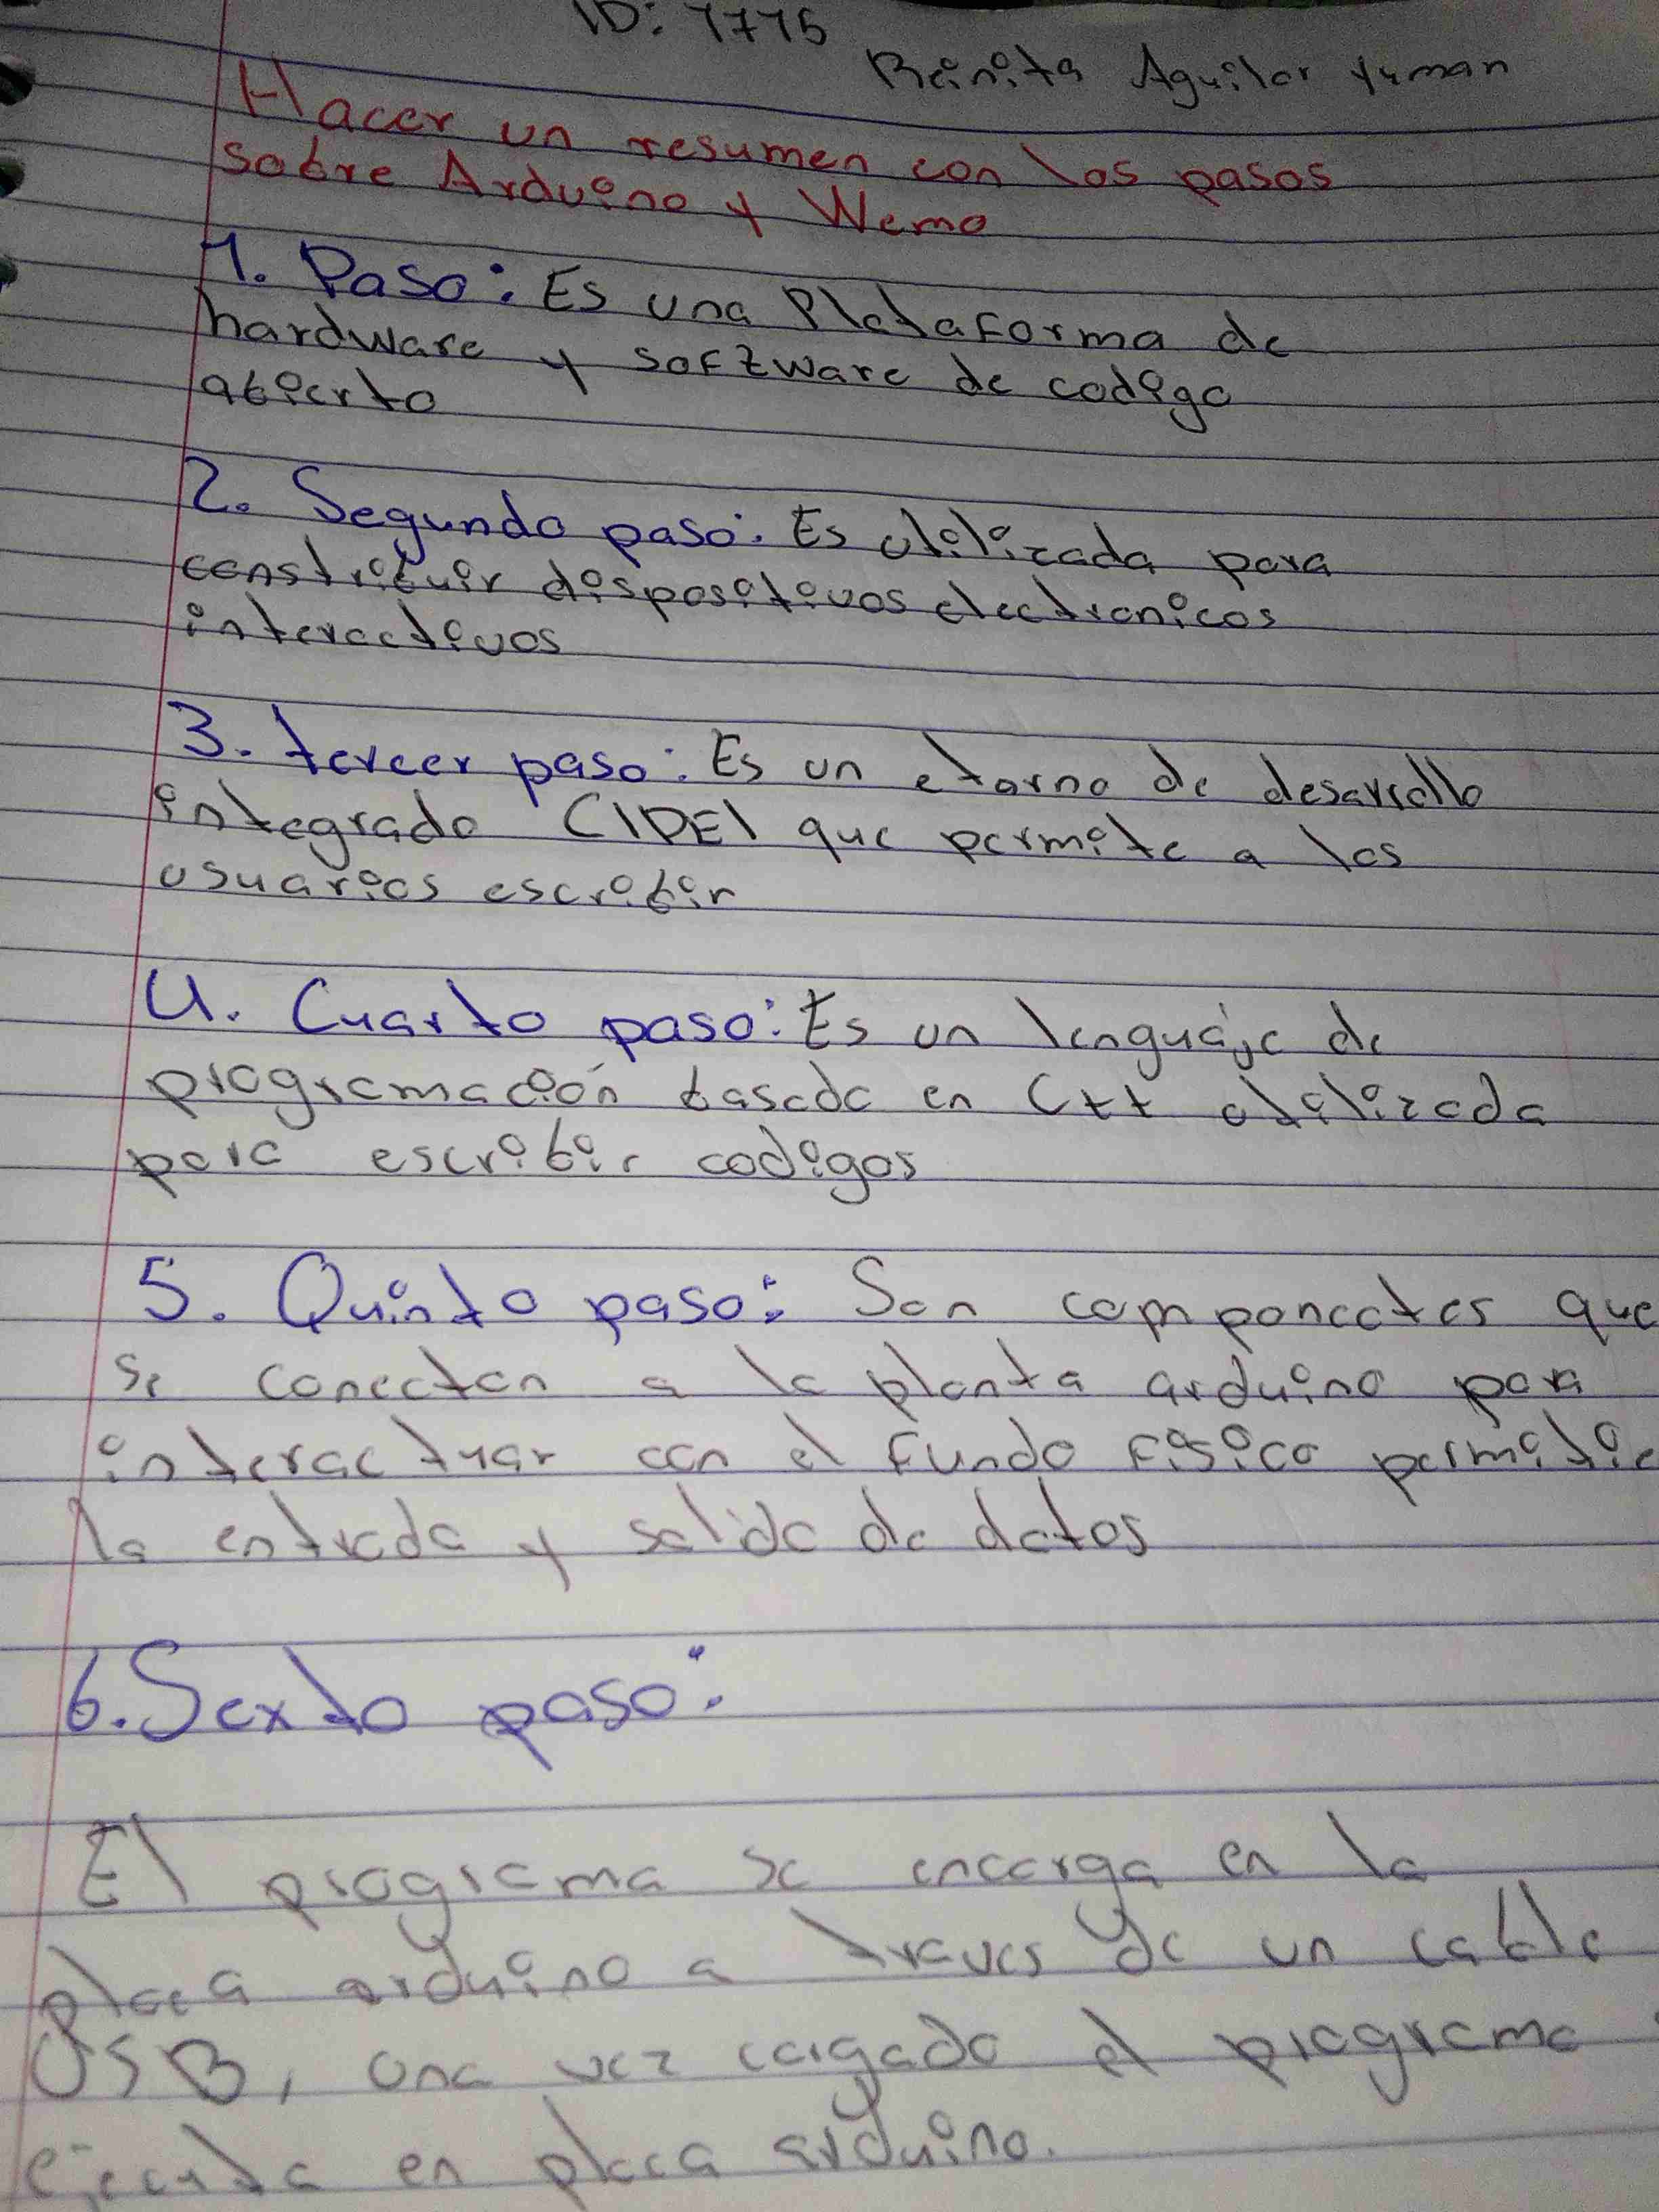 ID: 7775
Benita Aguilar Yuman
Hacer un resumen con los pasos
sobre Arduino y Wemo
1. Paso: Es una Plataforma de
hardware y software de codigo
abierto
2. Segundo paso: Es utilizada para
construir dispositivos electronicos
interactivos
3. tercer paso: Es un etorno de desarrollo
integrado (IDE) que permite a los
usuarios escribir
4. Cuarto paso: Es un lenguaje de
programación basada en C++ utilizada
para escribir codigos
5. Quinto paso: Son componectes que
se conectan a la planta arduino para
interactuar con el fundo fisico permitie
la entrada y salida de datos
6. Sexto paso:
El programa se encarga en la
placa arduino a traves de un cable
USB, una vez cargado el programa
ejecuta en placa arduino.